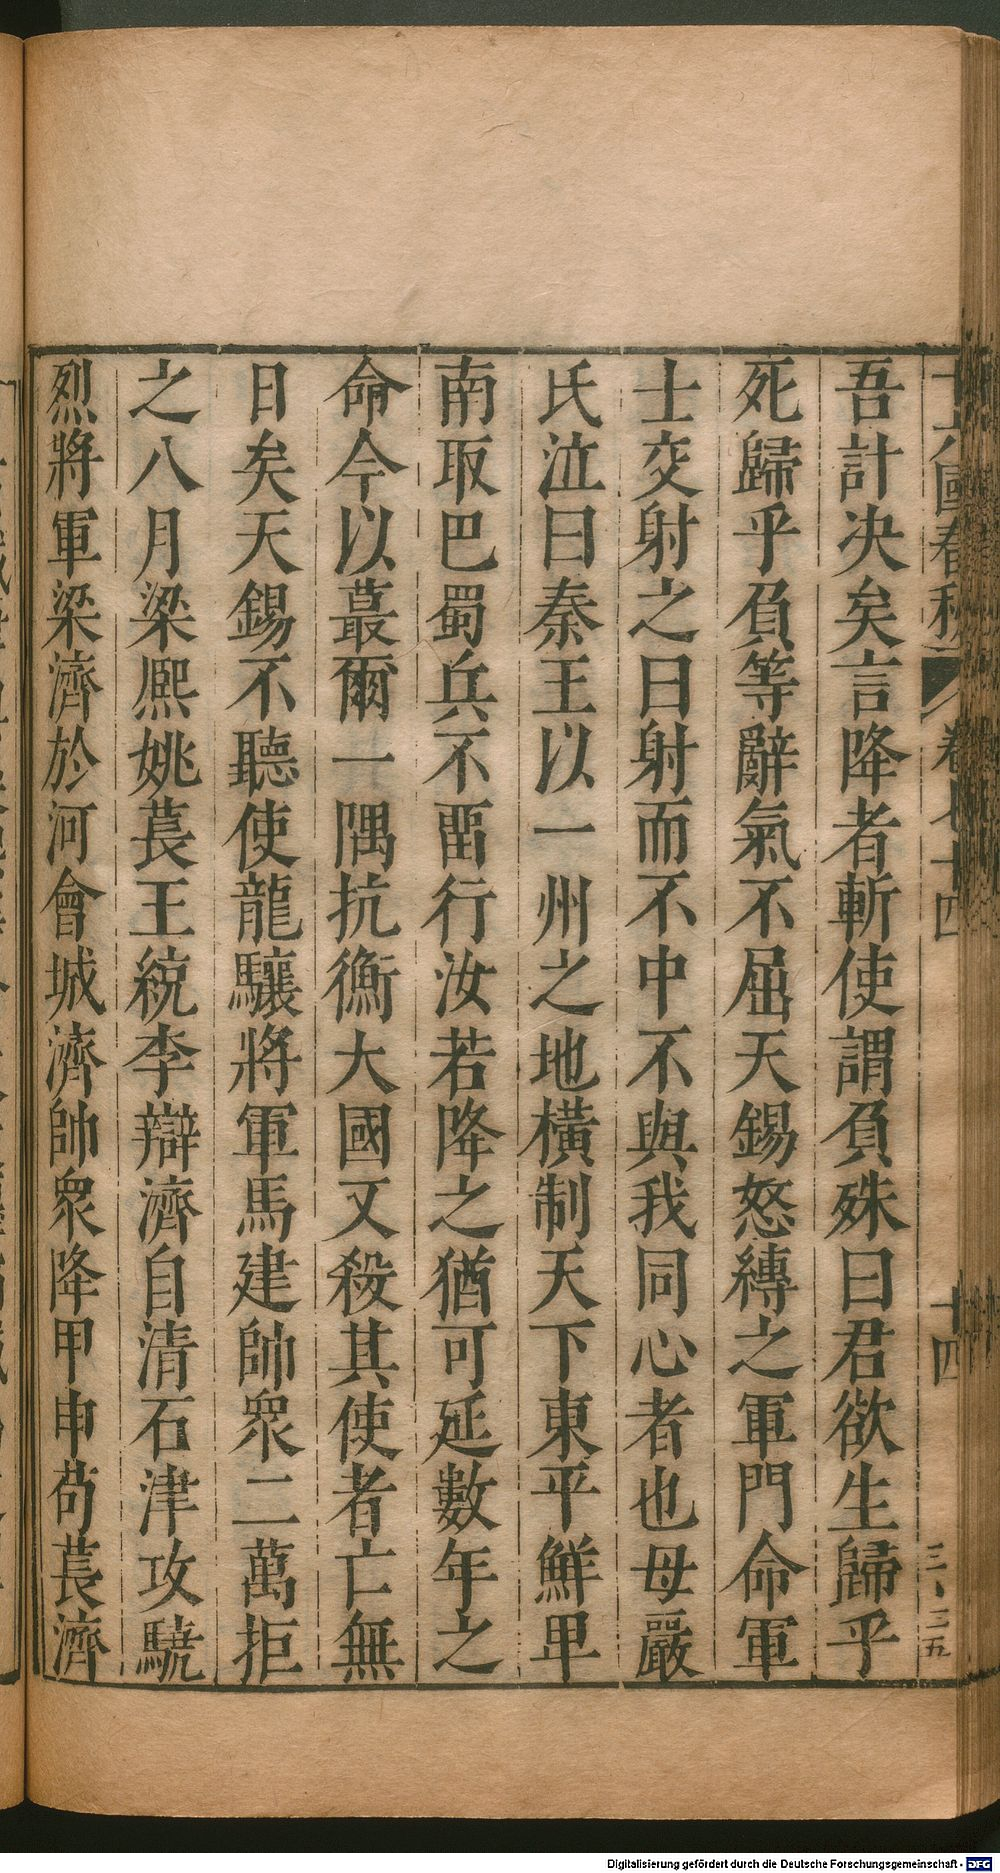 十六國春秋 卷七十四 十四 三、三五
吾計决矣言降者斬使謂負殊曰君欲生歸乎
死歸乎負等辭氣不屈天錫怒縛之軍門命軍
士交射之曰射而不中不與我同心者也母嚴
氏泣曰秦王以一州之地橫制天下東平鮮卑
南取巴蜀兵不畱行汝若降之猶可延數年之
命今以蕞爾一隅抗衡大國又殺其使者亡無
日矣天錫不聽使龍驤將軍馬建帥衆二萬拒
之八月梁熈姚萇王統李辯濟自清石津攻驍
烈將軍梁濟於河會城濟帥衆降甲申苟萇濟
Digitalisierung gefördert durch die Deutsche Forschungsgemeinschaft - DFG